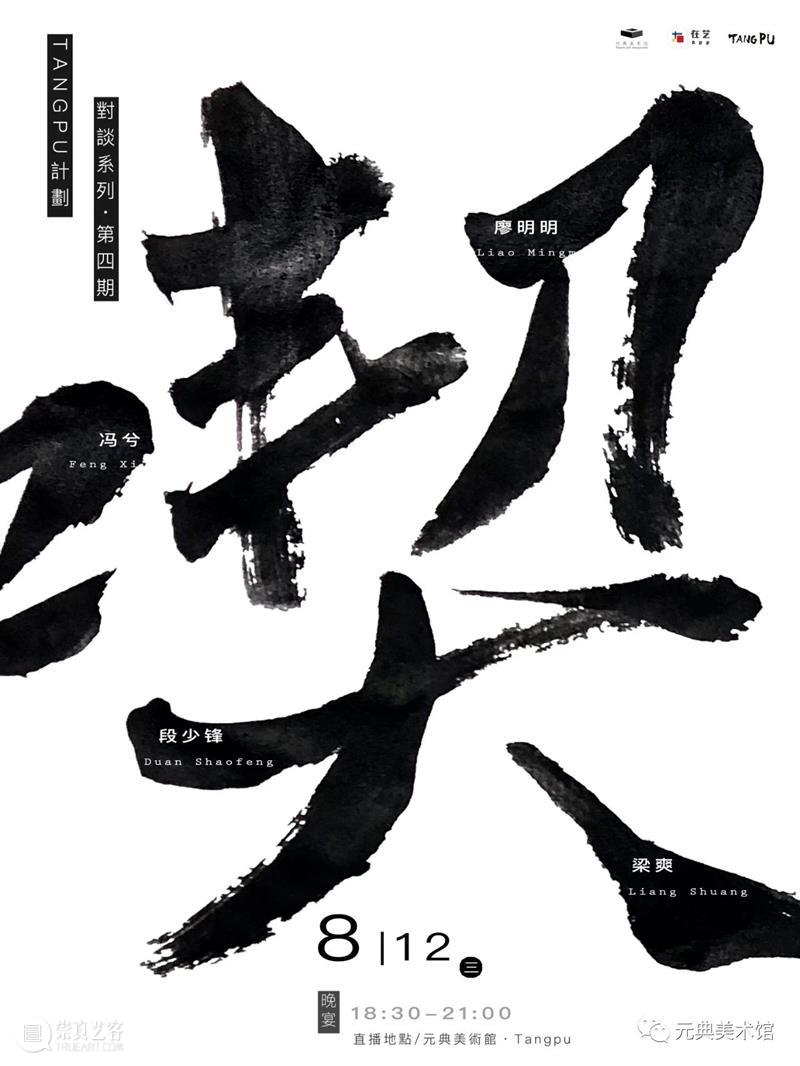 元典美术馆
在艺
App
TANGPU
TANGPU計劃
對談系列·第四期
契
廖明明
Liao Mingm
冯兮
Feng Xi
段少锋
Duan Shaofeng
梁爽
Liang Shuang
8|12 三
晚宴
18:30–21:00
直播地點/元典美術館·Tangpu
崇真艺客
TRUEART.COM
元典美术馆